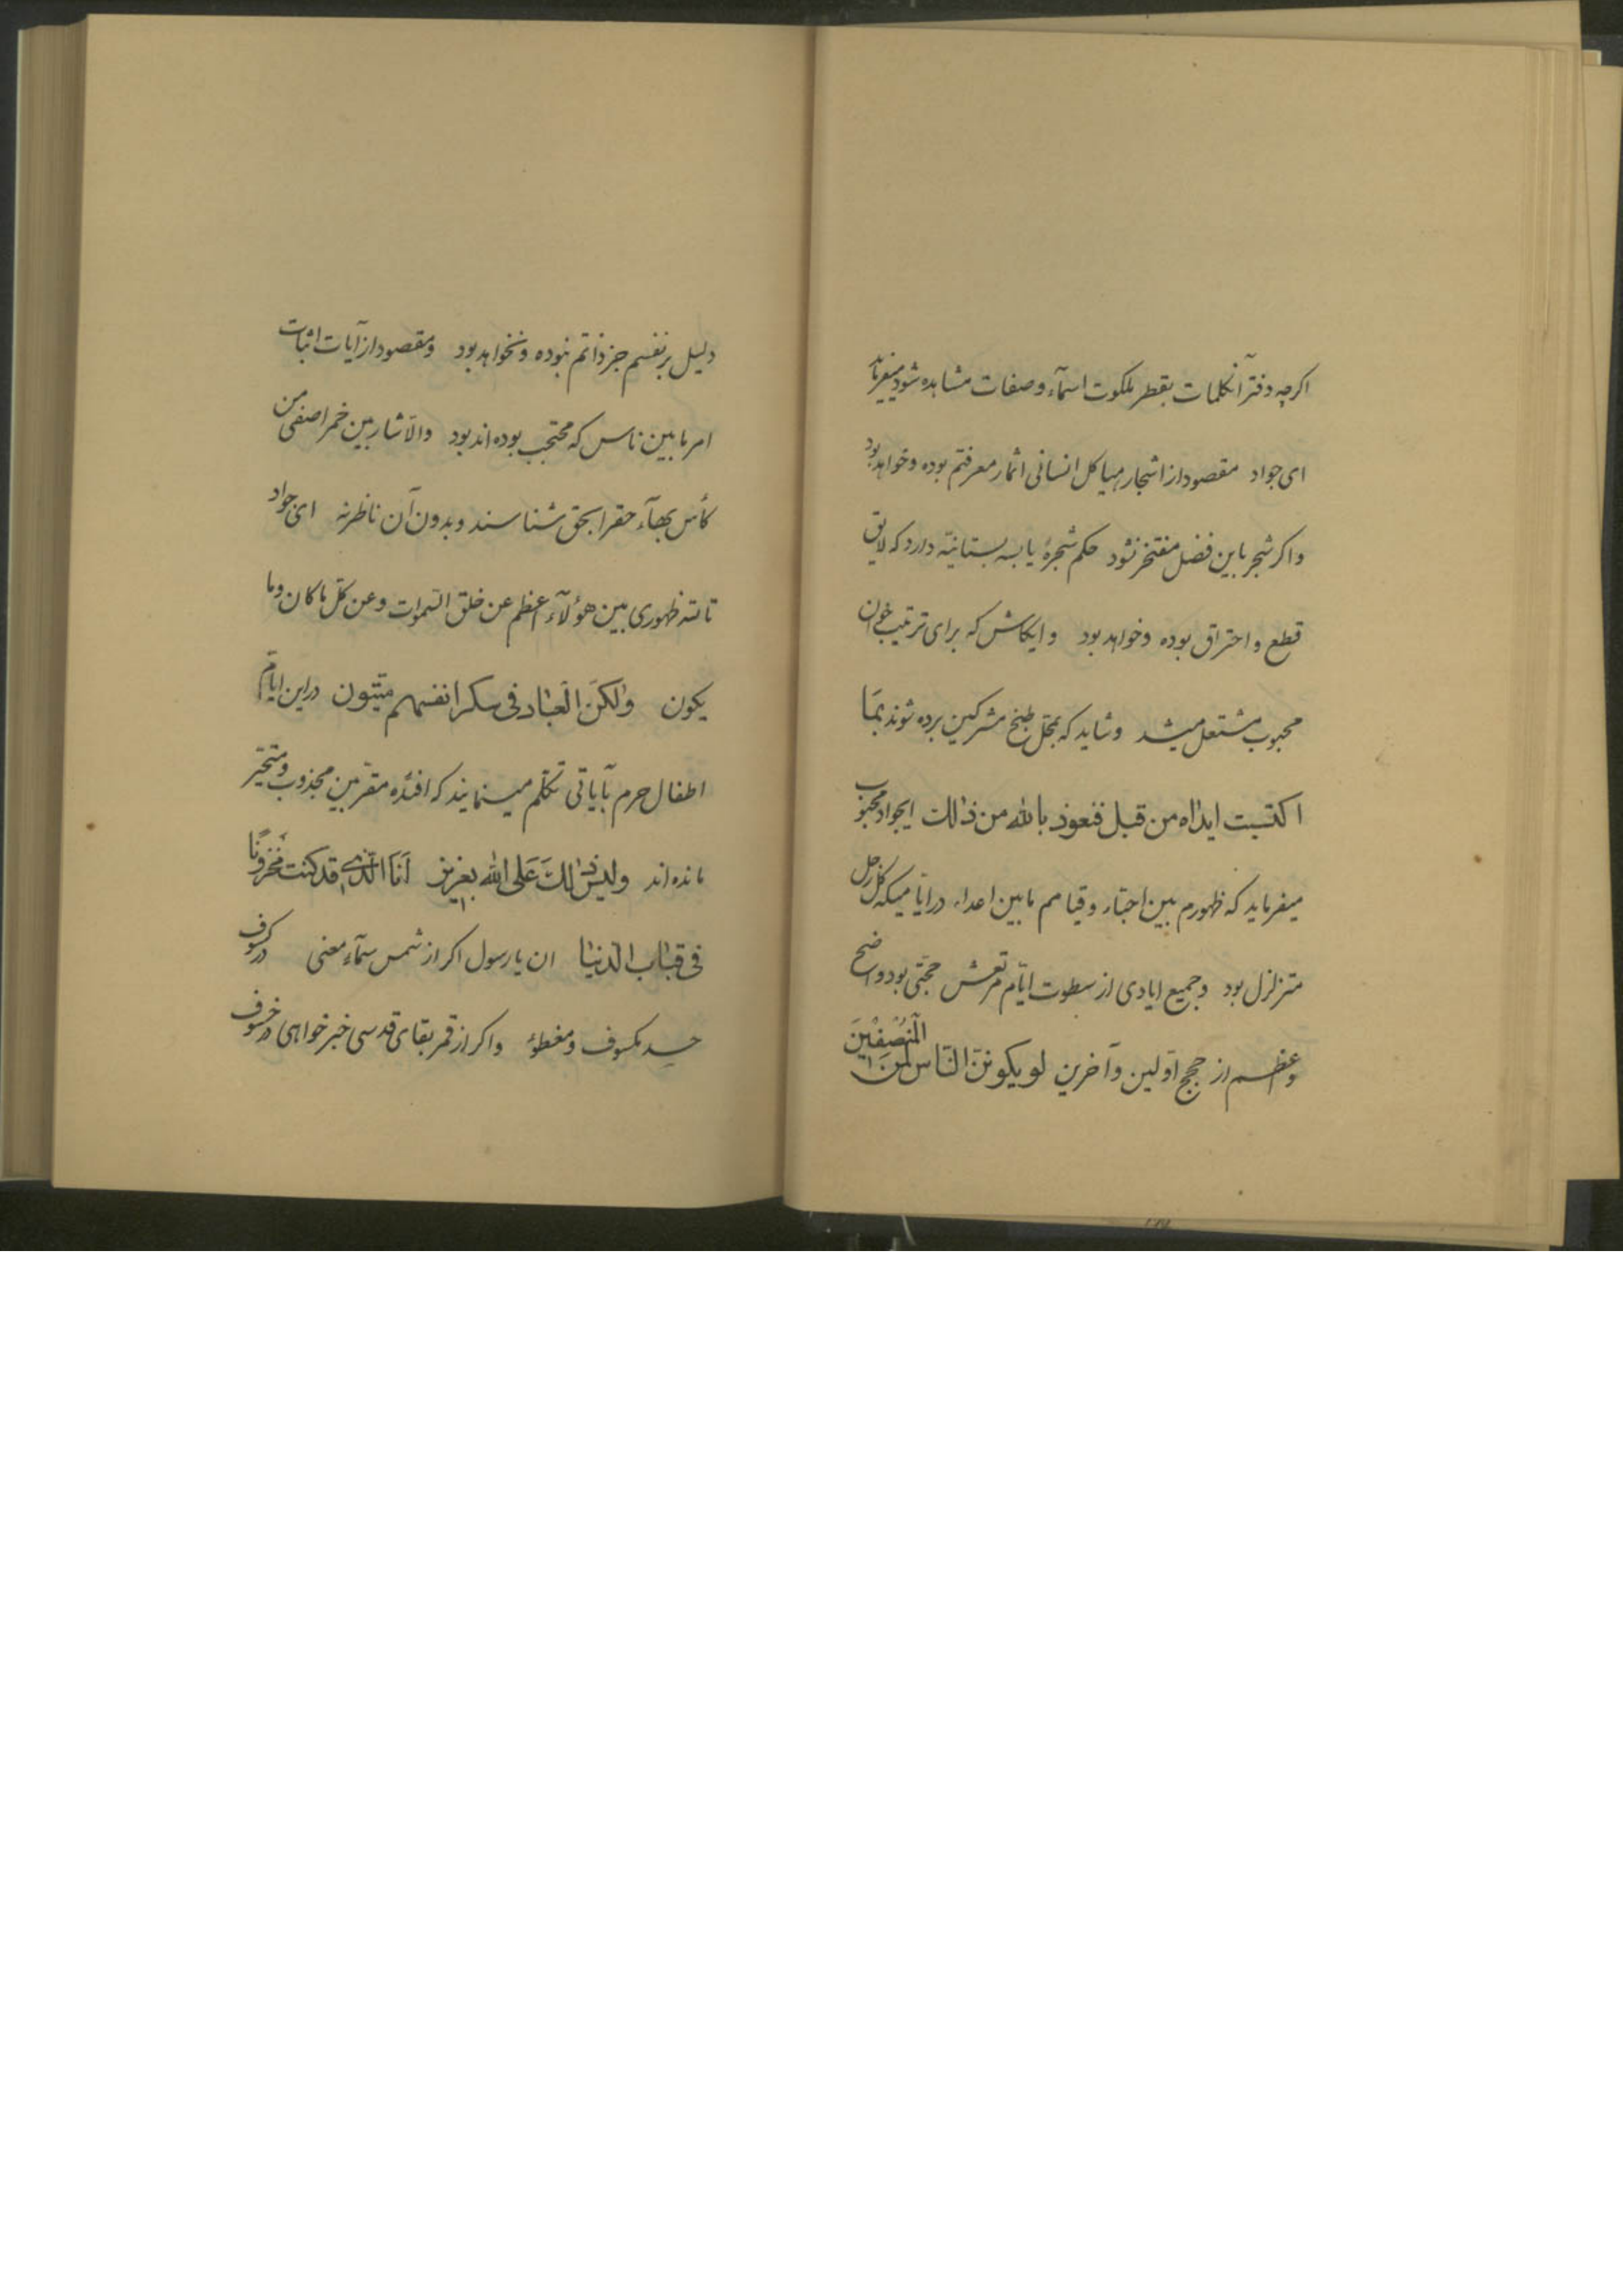 اکرچه دفتر آنکلمات بقطر ملکوت اسمآء و صفات مشاهده شود میفرماید
ای جواد مقصود از اشجار هیاکل انسانی اثمار معرفتم بوده و خواهد بود
و اکر شجر باین فضل مفتخر نشود حکم شجرهٔ یابسه بستانیّه دارد که لایق
قطع و احتراق بوده و خواهد بود و ایکاش که برای ترتیب خوان
محبوب مشتعل میشد و شاید که بمحل طبخ مشرکین برده شوند بمَا
اکتسبت ایداه من قبل فنعوذ بالله من ذالک ایجواد محبوب
میفرماید که ظهورم بین احبّاء و قیامم ما بین اعداء در ایّامیکه کلّ ارجل
متزلزل بود و جمیع ایادی از سطوت ایّام مرتعش حجّتی بود واضح
و اعظم از حجج اوّلین و آخرین لو یکوننّ النّاس لمن المنصفین
دلیل بر نفسم جز ذاتم نبوده و نخواهد بود و مقصود از آیات اثبات
امر ما بین ناس که محتجب بوده‌اند بود والّا شاربین خمر اصفی من
کأس بهآء حق را بحق شناسند و بدون آن ناظر نه ای جواد
تالله ظهوری بین هؤلآء اعظم عن خلق السّموات و عن کلّ ما کان و ما
یکون ولکن العباد فی سکر انفسهم میّتون در این ایّام
اطفال حرم بآیاتی تکلّم مینمایند که افئده مقرّبین مجذوب و متحیّر
مانده‌اند ولیس ذالک علی الله بعزیز أنا الّذی قد کنت محزونًا
فی قباب الدّنیا ان یا رسول اکر از شمس سمآء معنی در کسوف
حسد مکسوف و مغطوء و اکر از قمر بقای قدسی خبر خواهی در خسوف